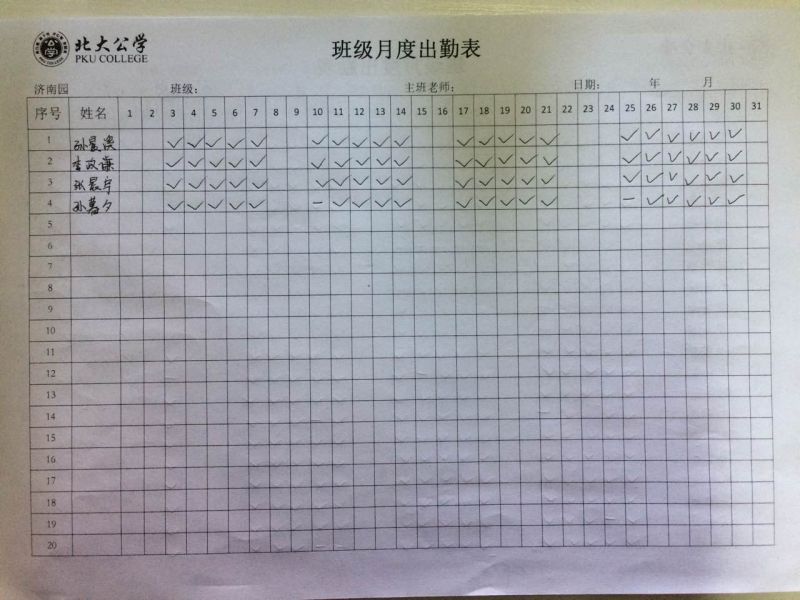 北大公学
PKU COLLEGE
班级月度出勤表
济南园 班级： 主班老师： 日期： 年 月
序号 姓名 1 2 3 4 5 6 7 8 9 10 11 12 13 14 15 16 17 18 19 20 21 22 23 24 25 26 27 28 29 30 31
1 ✓ ✓ ✓ ✓ ✓ ✓ ✓ ✓ ✓ ✓ ✓ ✓ ✓ ✓ ✓ ✓ ✓ ✓ ✓ ✓ ✓
2 李政谦 ✓ ✓ ✓ ✓ ✓ ✓ ✓ ✓ ✓ ✓ ✓ ✓ ✓ ✓ ✓ ✓ ✓ ✓ ✓ ✓ ✓
3 张晨宇 ✓ ✓ ✓ ✓ ✓ ✓ ✓ ✓ ✓ ✓ ✓ ✓ ✓ ✓ ✓ ✓ ✓ ✓ ✓ ✓ ✓
4 孙暮夕 ✓ ✓ ✓ ✓ ✓ – ✓ ✓ ✓ ✓ ✓ ✓ ✓ ✓ ✓ – ✓ ✓ ✓ ✓ ✓
5
6
7
8
9
10
11
12
13
14
15
16
17
18
19
20